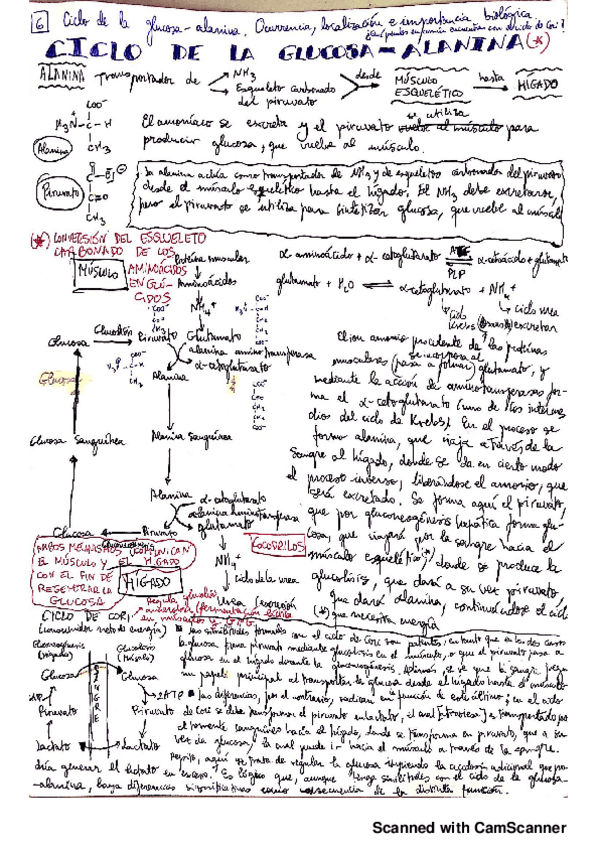 6 Ciclo de la glucosa-alanina. Ocurrencia, localización e importancia biológica
CICLO DE LA GLUCOSA-ALANINA (*)
ALANINA transportador de
NH3
Esqueleto carbonado del piruvato
desde
MÚSCULO ESQUELÉTICO
hasta
HÍGADO
COO-
H3N+-C-H
CH3
Alanina
El amoníaco se excreta y el piruvato se utiliza para
producir glucosa, que vuelve al músculo.
Piruvato
C=O
CH3
La alanina actúa como transportador de NH3 y de esqueleto carbonado del piruvato
desde el músculo esquelético hasta el hígado. El NH3 debe excretarse,
pero el piruvato se utiliza para sintetizar glucosa, que vuelve al músculo
(*) CONVERSIÓN DEL ESQUELETO
CARBONADO DE LOS
AMINOÁCIDOS
EN GLÚ-
CIDOS
MÚSCULO
Proteína muscular
Aminoácidos
NH4+
α-aminoácido + α-cetoglutarato
PLP
α-cetoácido + glutamato
glutamato + H2O
α-cetoglutarato + NH4+
ciclo Krebs
ciclo urea
Glucosa
Glucólisis
Piruvato
Glutamato
alanina aminotransferasa
α-cetoglutarato
Alanina
Glucosa
Glucosa Sanguínea
Alanina Sanguínea
El ion amonio procedente de las proteínas
musculares se incorpora al (pasa a formar) glutamato, y
mediante la acción de aminotransferasas for-
ma el α-cetoglutarato (uno de los interme-
dios del ciclo de Krebs). En el proceso se
forma alanina, que viaja a través de la
sangre al hígado, donde se da en cierto modo
el proceso inverso, liberándose el amonio, que
será excretado. Se forma aquí el piruvato,
que por gluconeogénesis hepática forma glu-
cosa, que viajará por la sangre hacia el
músculo esquelético(*), donde se produce la
glucólisis, que dará a su vez piruvato,
que dará alanina, continuándose el ciclo
(*) que necesita energía
Alanina
α-cetoglutarato
alanina aminotransferasa
glutamato
Glucosa
Gluconeogénesis
Piruvato
NH4+
ciclo de la urea
Urea (excreción)
COCODRILOS
AMBOS MECANISMOS COMUNICAN
EL MÚSCULO Y EL HÍGADO
CON EL FIN DE
REGENERAR LA
GLUCOSA
HÍGADO
CICLO DE CORI
(consumidor neto de energía)
Gluconeogénesis (Hígado)
Glucólisis (Músculo)
Glucosa
SANGRE
Glucosa
2ATP
Piruvato
Piruvato
Lactato
Lactato
las similitudes formales con el ciclo de Cori son patentes, en tanto que en los dos casos
la glucosa forma piruvato mediante glucólisis en el músculo, o que el piruvato pasa a
glucosa en el hígado durante la gluconeogénesis. Además, se ve que la sangre juega
un papel principal al transportar la glucosa desde el hígado hasta el músculo
las diferencias, por el contrario, radican en función de este último; en el ciclo
de Cori se debe transformar el piruvato en lactato, el cual es transportado por
el torrente sanguíneo hacia el hígado, donde se transforma en piruvato, que a su
vez da glucosa, la cual puede ir hacia el músculo a través de la sangre.
-alanina, haya diferencias significativas como consecuencia de la distinta función.
Scanned with CamScanner